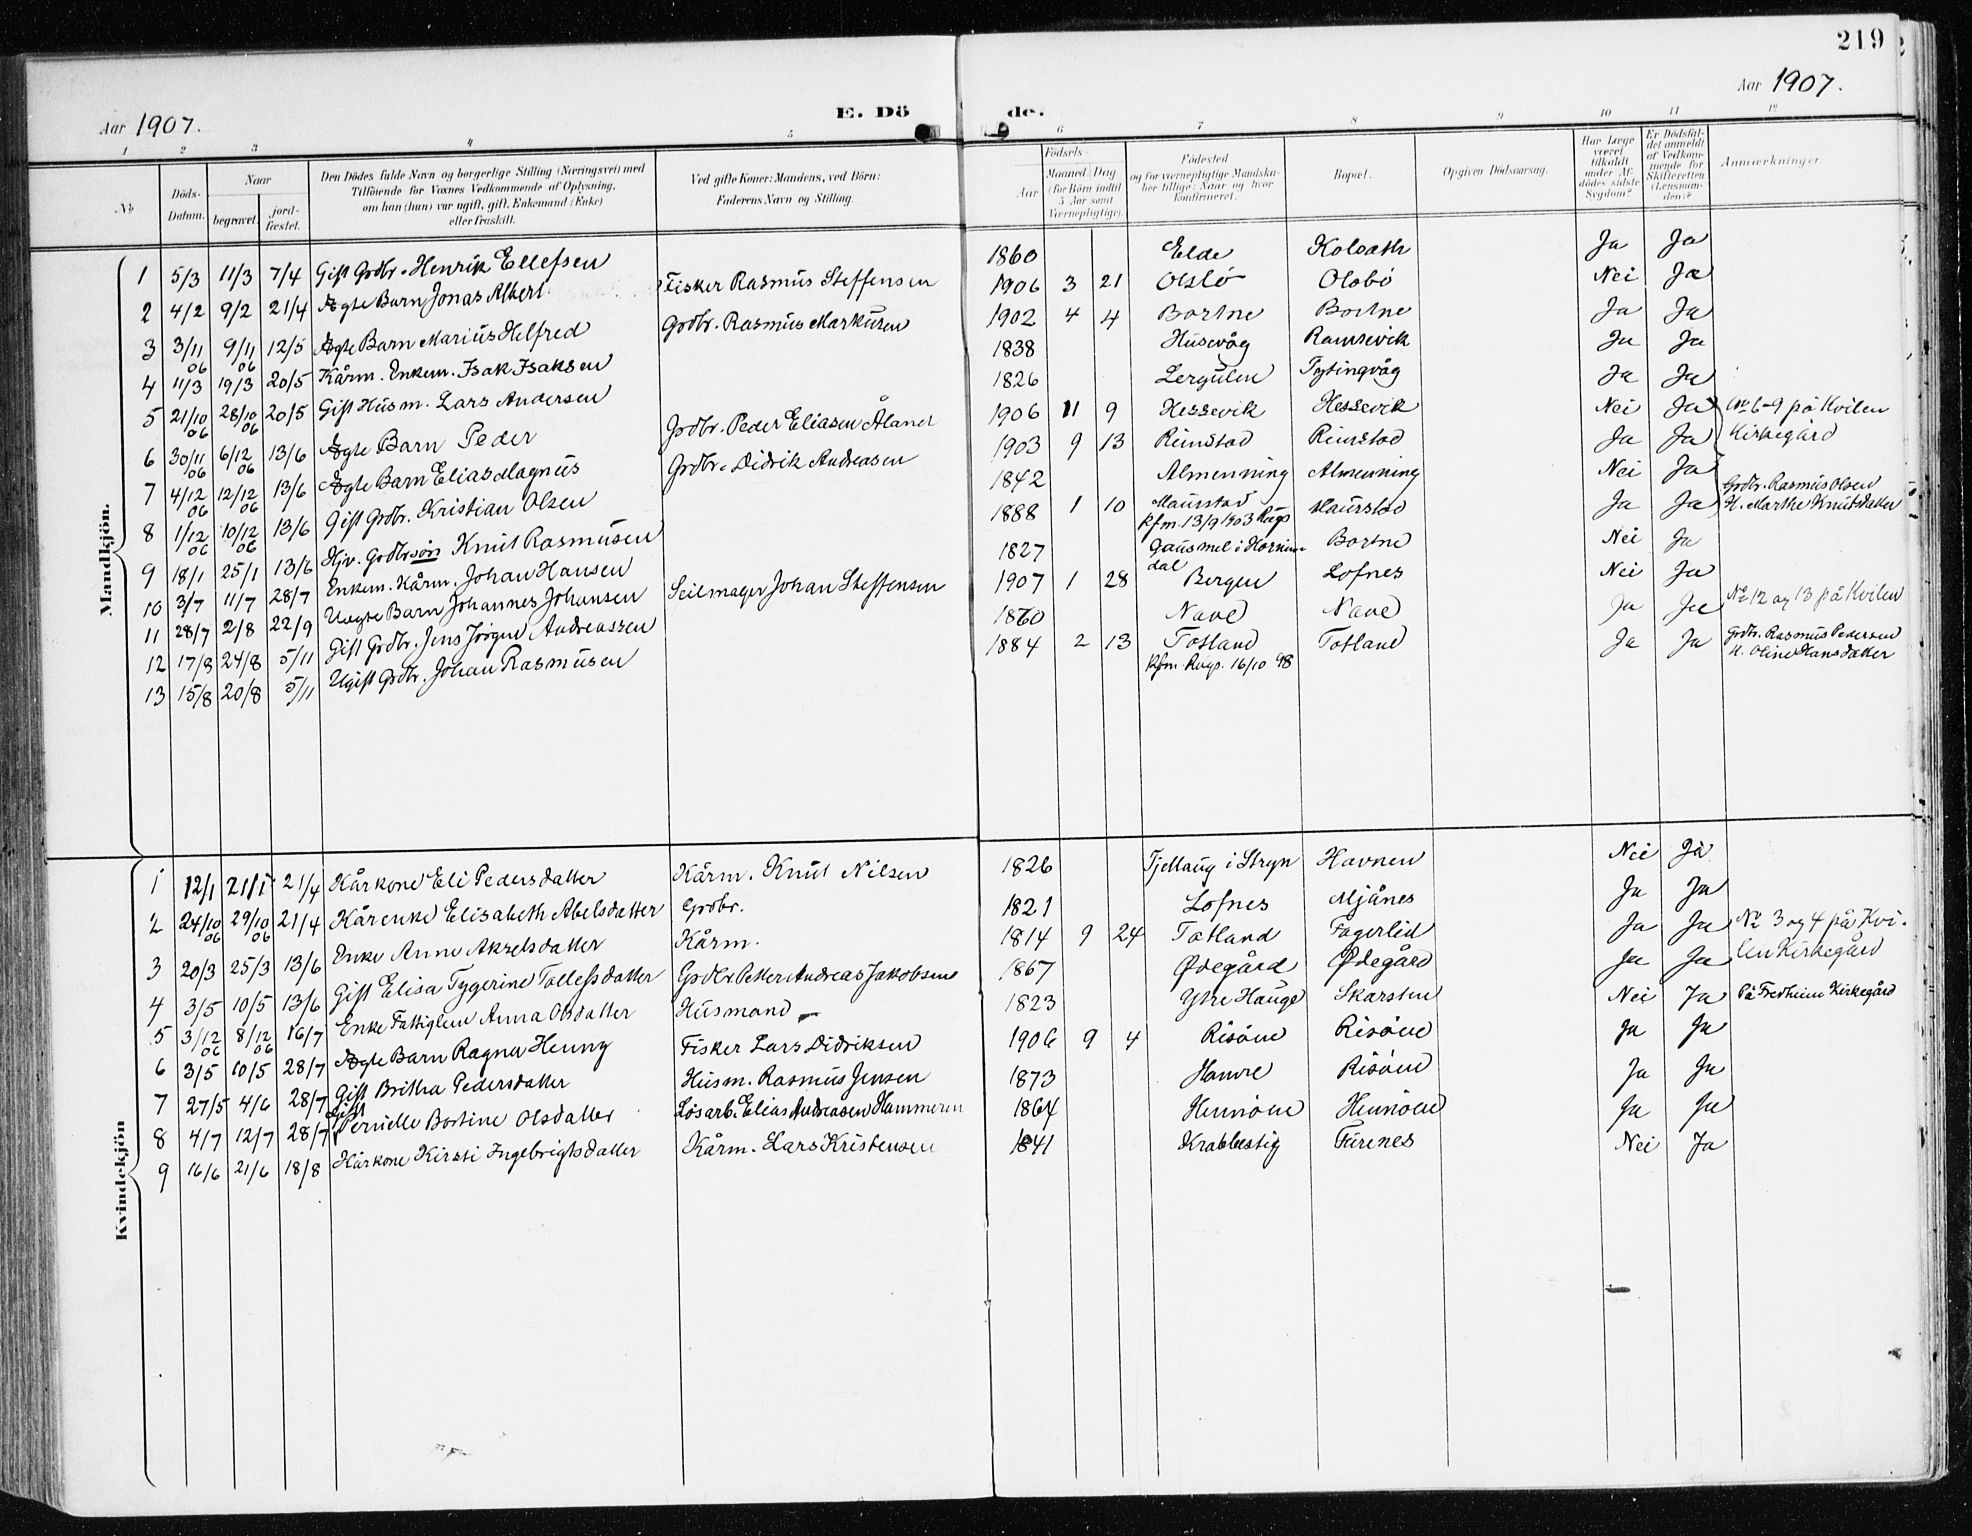 219
Aar 1907.
E. Dö de.
Aar 1907.
1 2 3 4 5 6 7 8 9 10 11 12
No
Döds-Datum.
Naar
begravet.
jord-fæstet.
Den Dödes fulde Navn og borgerlige Stilling (Næringsvei) med
Tilföiende for Voxnes Vedkommende af Oplysning,
om han (hun) var ugift, gift, Enkemand (Enke)
eller fraskilt.
Ved gifte Koner: Mandens, ved Börn:
Faderens Navn og Stilling.
Födsels-
Aar
Maaned Dag
(for Börn indtil
5 Aar samt
Værnepligtige).
Födested
og for værnepligtige Mandska-
ber tillige: Naar og hvor
konfirmeret.
Bopæl.
Opgiven Dödsaarsag.
Har Læge
været
tilkaldt
under Af-
dödes sidste
Sygdom?
Er Dödsfal-
det anmeldt
af Vedkom-
mende for
Skifteretten
(Lensman-
den)?
Anmærkninger
Mandkjön.
1 5/3 11/3 7/4 Gift Grdbr. Henrik Ellefsen 1860 Elde Ja Ja
2 4/2 9/2 21/4 Ægte Barn Jonas Albert Fisker Rasmus Steffensen 1906 3 21 Nei Ja
3 3/11 06 9/11 06 12/5 Ægte Barn Marius Helfred Grdbr. Rasmus Markusen 1902 4 4 Bortne Bortne Ja Ja
4 11/3 19/3 20/5 Kårm. Enkem. Isak Isaksen 1838 Husevåg Ramsevik Ja Ja
5 21/10 06 28/10 06 20/5 Gift Husm. Lars Andersen 1826 Lergulen Tytingvåg Ja Ja
6 30/11 06 6/12 06 13/6 Ægte Barn Peder Grdbr. Peder Eliasen Åland 1906 11 9 Hessevik Hessevik Nei Ja No 6-9 på Kvilen
7 4/12 06 12/12 06 13/6 Ægte Barn Elias Magnus Grdbr. Didrik Andreasen 1903 9 13 Rimstad Rimstad Ja Ja Kirkegård
8 1/12 06 10/12 06 13/6 Gift Grdbr. Kristian Olsen 1842 Almenning Almenning Nei Ja
9 18/1 25/1 13/6 Hjv. Grdbrsön Knut Rasmusen 1888 1 10 Maurstad kfm. 13/9 1903 Rugs Maurstad Ja Ja Grdbr. Rasmus Olsen H. Marthe Knutsdatter
10 3/7 11/7 28/7 Enkem. Kårm. Johan Hansen 1827 Gausmel i Hornindal Bortne Nei Ja
11 28/7 2/8 22/9 Uægte Barn Johannes Johansen Seilmager Johan Steffensen 1907 1 28 Bergen Lofnes Nei Ja
12 17/8 24/8 5/11 Gift Grdbr. Jens Jörgen Andreassen 1860 Nave Nave Ja Ja No 12 og 13 på Kvilen
13 15/8 20/8 5/11 Ugift Grdbr. Johan Rasmusen 1884 2 13 Totland kfm. Rugs. 16/10 98 Totland Ja Ja Grdbr. Rasmus Pedersen H. Oline Hansdatter
Kvindekjön
1 12/1 21/1 21/4 Kårkone Eli Pedersdatter Kårm. Knut Nilsen 1826 Tjellaug i Stryn Havnen Nei Ja
2 24/10 06 29/10 06 21/4 Kårenke Elisabeth Abelsdatter Grdbr. 1821 Lofnes Mjånes Ja Ja
3 20/3 25/3 13/6 Enke Anne Akselsdatter Kårm. 1814 9 24 Totland Fagerlid Ja Ja No 3 og 4 på Kvi-
4 3/5 10/5 13/6 Gift Elisa Tygerine Tollefsdatter Grdbr. Petter Andreas Jakobsen 1867 Ødegård Ødegård Ja Ja len Kirkegård
5 3/12 06 8/12 06 16/7 Enke Fattiglem Anna Olsdatter Husmand 1823 Ytre Hauge Skarsten Nei Ja På Fredheim Kirkegård
6 3/5 10/5 28/7 Ægte Barn Ragna Henny Fisker Lars Didriksen 1906 9 4 Risöen Risöen Ja Ja
7 27/5 4/6 28/7 Gift Britha Pedersdatter Husm. Rasmus Jensen 1873 Hamre Risöen Ja Ja
8 4/7 12/7 28/7 Gift Pernielle Bortine Olsdatter Lösarb. Elias Andreasen Hammeren 1864 Hennöen Hennöen Ja Ja
9 16/6 21/6 18/8 Kårkone Kirsti Ingebrigtsdatter Kårm. Lars Kristensen 1841 Krabbestig Færenes Nei Ja